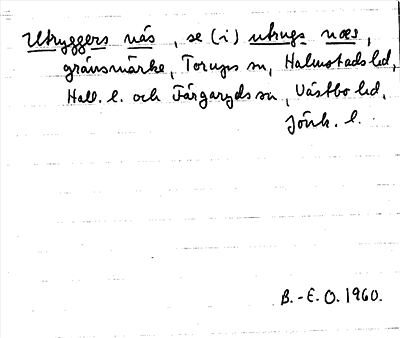 Utryggers näs, se (i) utrugs næs,
gränsmärke, Torups sn, Halmstads hd,
Hall. l. och Färgaryds sn, Västbo hd,
Jönk. l.
B.-E. O. 1960.